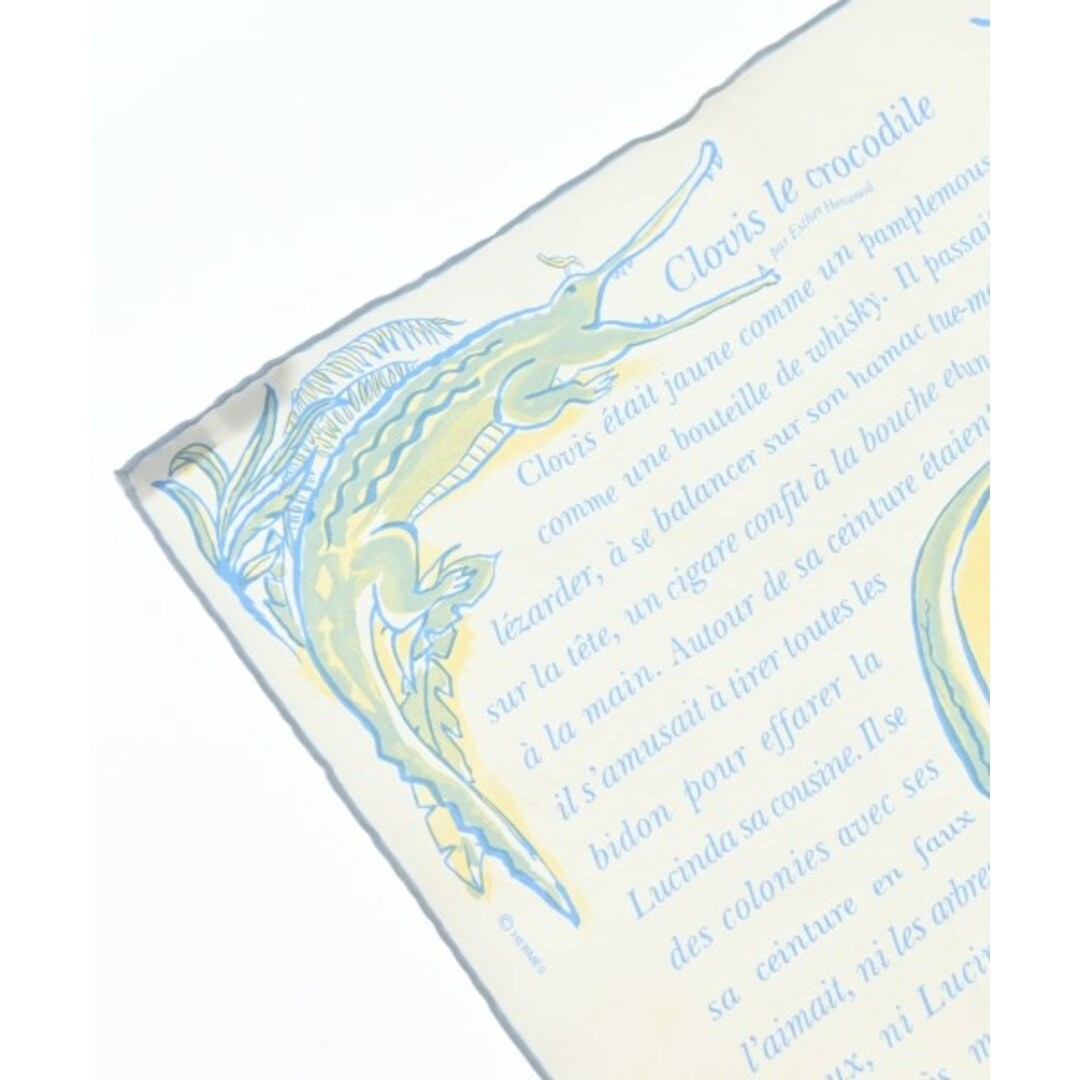 Clovis le crocodile
par Esther
Clovis était jaune comme un pamplemous
comme une bouteille de whisky. Il passait
lézarder, à se balancer sur son hamac tue-mo
sur la tête, un cigare confit à la bouche et un
à la main. Autour de sa ceinture étaient
il s'amusait à tirer toutes les
bidon pour effarer la
Lucinda sa cousine. Il se
des colonies avec ses
sa ceinture en faux
l'aimait, ni les arbres
ux, ni Lucin
ès m
© HERMES